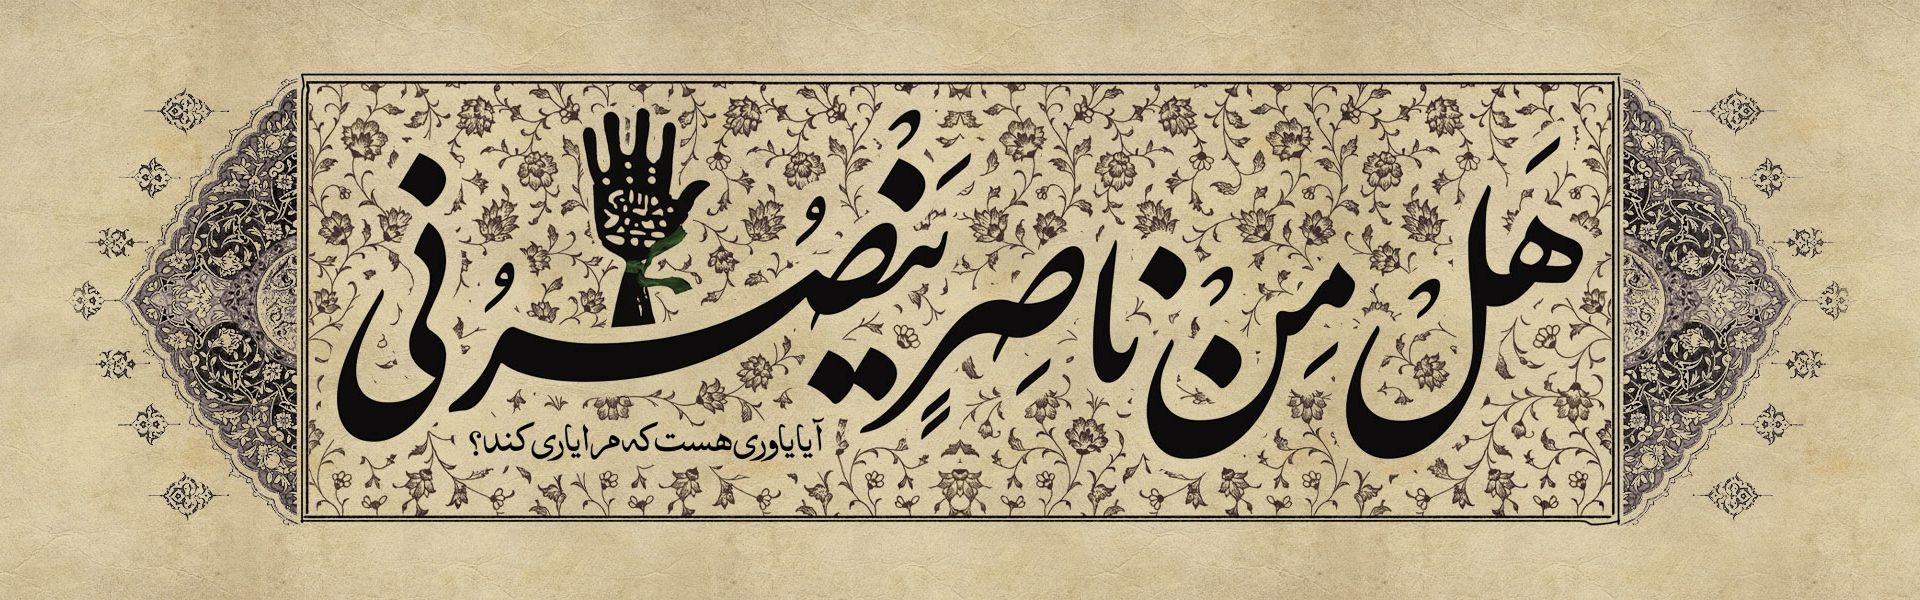 هَل مِن ناصِرٍ یَنصُرُنی
آیا یاوری هست که مرا یاری کند؟